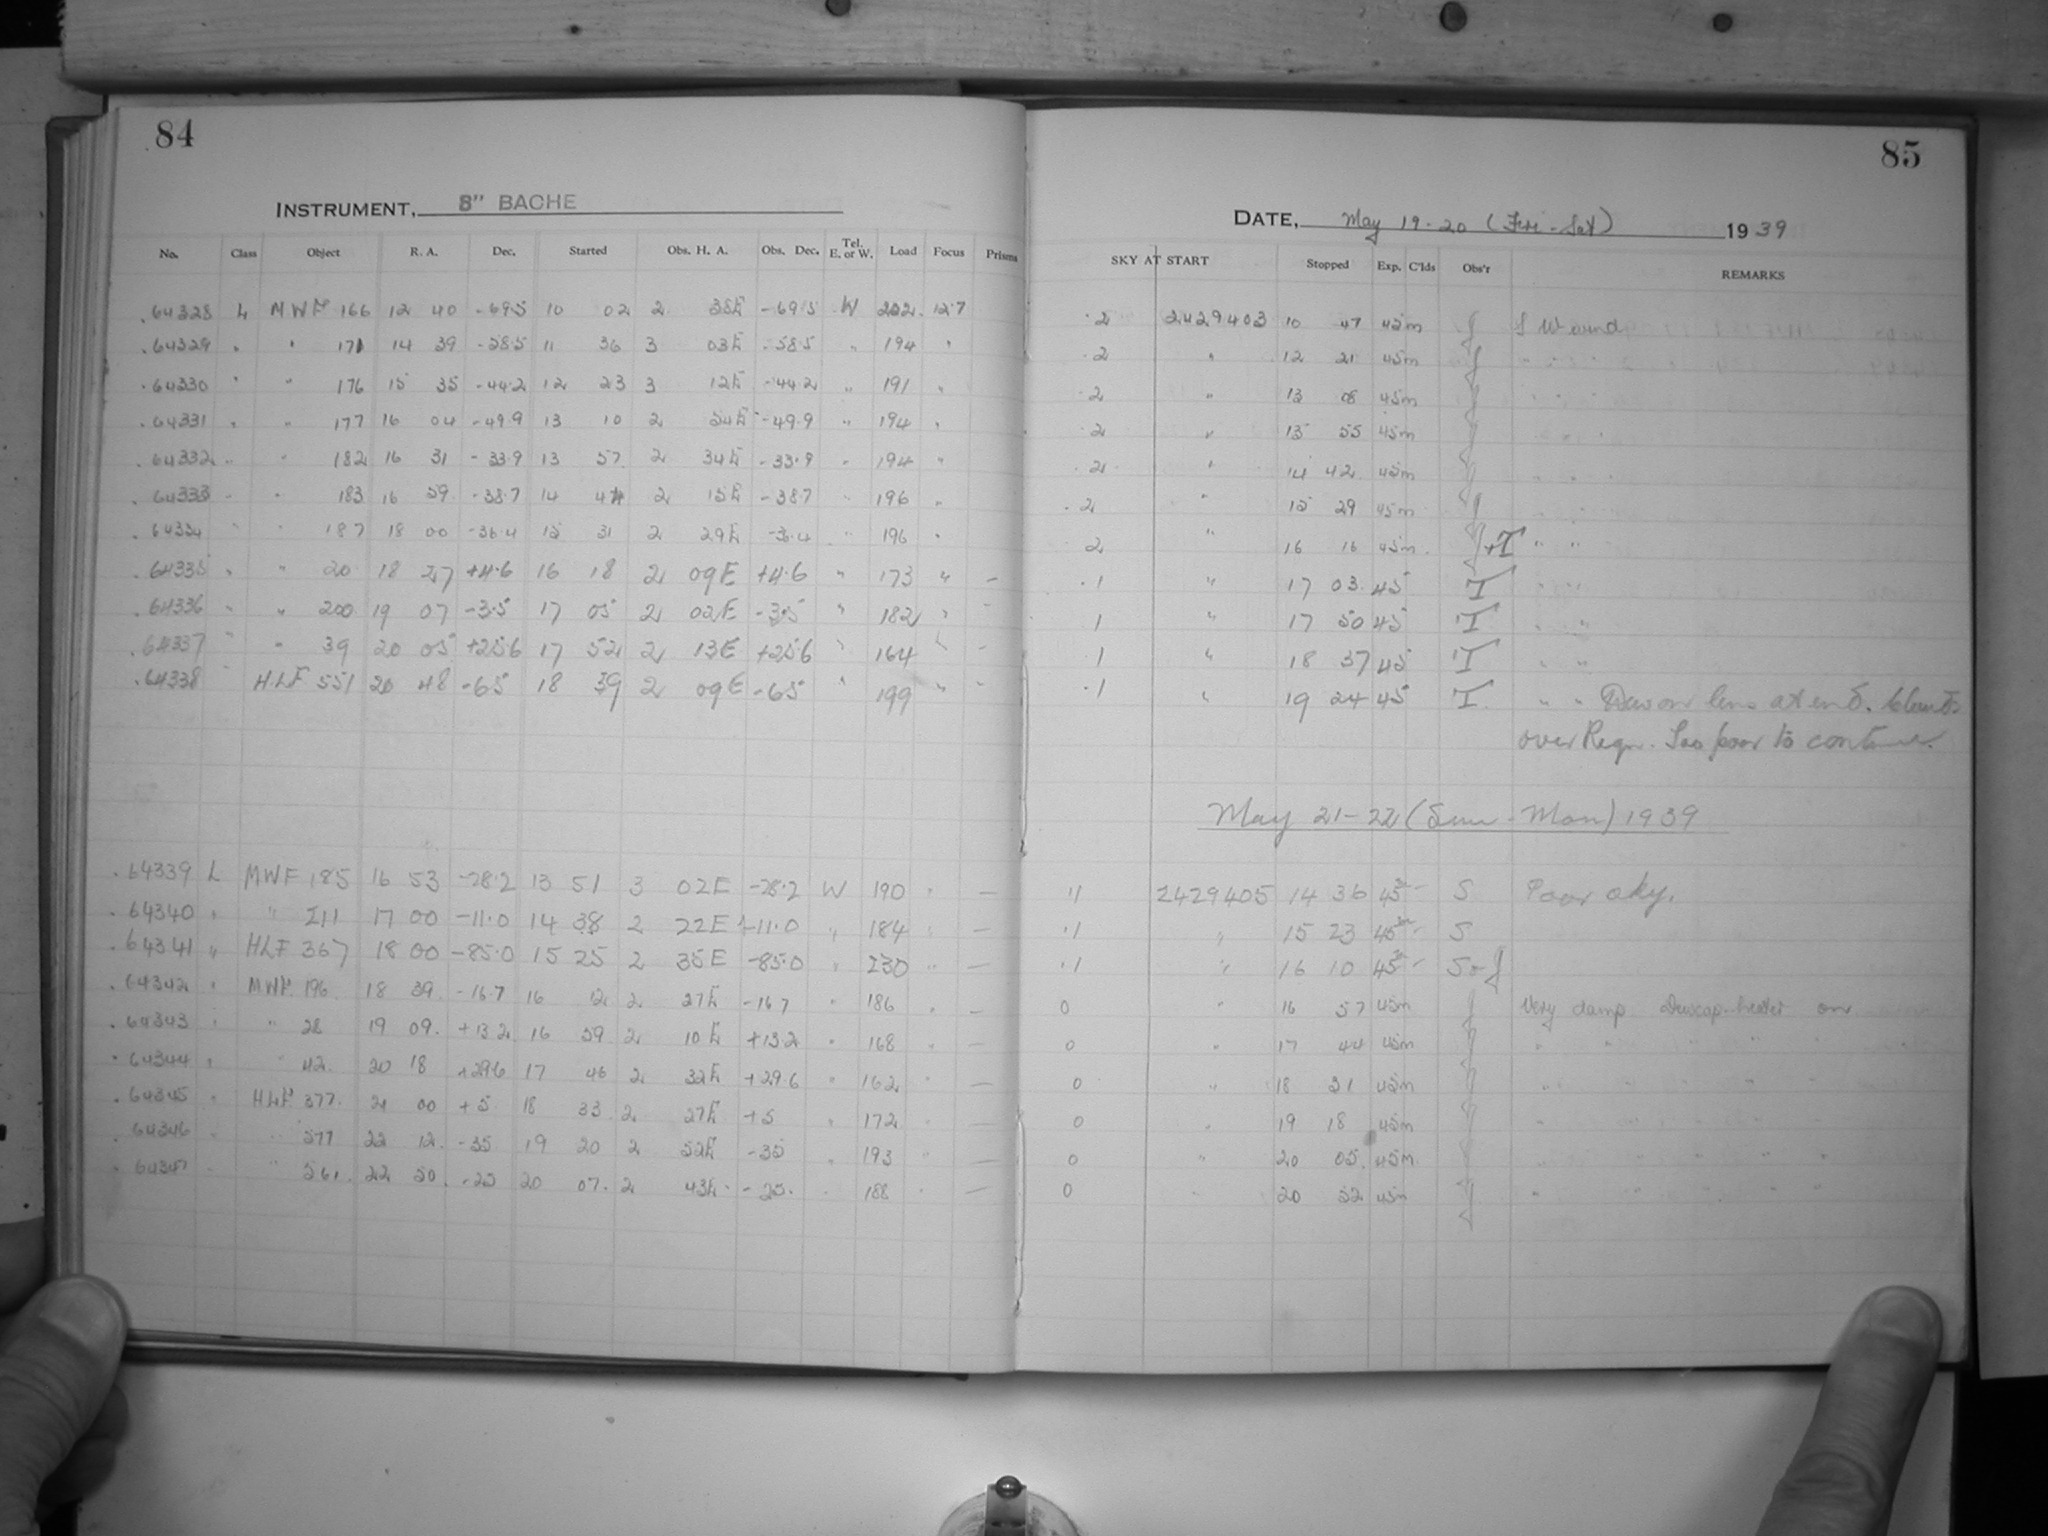 84
INSTRUMENT, 8" BACHE
No. Class Object R. A. Dec. Started Obs. H. A. Obs. Dec. Tel. E. or W. Load Focus Prisms
.64328 L MWF 166 12 40 -69.5 10 02 2 38E -69.5 W 202 12.7
.64329 " " 171 14 39 -58.5 11 36 3 03E -58.5 " 194 "
.64330 " " 176 15 35 -44.2 12 23 3 12E -44.2 " 191 "
.64331 " " 177 16 04 -49.9 13 10 2 54E -49.9 " 194 "
.64332 " " 182 16 31 -33.9 13 57 2 34E -33.9 " 194 "
.64333 " " 183 16 59 -38.7 14 44 2 15E -38.7 " 196 "
.64334 " " 187 18 00 -36.4 15 31 2 29E -36.4 " 196 "
.64335 " " 20 18 27 +4.6 16 18 2 09E +4.6 " 173 " —
.64336 " " 200 19 07 -3.5 17 05 2 02E -3.5 " 182 " —
.64337 " " 39 20 05 +25.6 17 52 2 13E +25.6 " 164 " —
.64338 " HLF 551 20 48 -65 18 39 2 09E -65 " 199 " —
.64339 L MWF 185 16 53 -28.2 13 51 3 02E -28.2 W 190 " —
.64340 " " 211 17 00 -11.0 14 38 2 22E -11.0 " 184 " —
.64341 " HLF 367 18 00 -85.0 15 25 2 35E -85.0 " 230 " —
.64342 " MWF 196 18 39 -16.7 16 12 2 27E -16.7 " 186 " —
.64343 " " 28 19 09 +13.2 16 59 2 10E +13.2 " 168 " —
.64344 " " 42 20 18 +29.6 17 46 2 32E +29.6 " 162 " —
.64345 " HLF 377 21 00 +5 18 33 2 27E +5 " 172 " —
.64346 " " 577 22 12 -35 19 20 2 52E -35 " 193 " —
.64347 " " 561 22 50 -25 20 07 2 43E -25 " 188 " —
85
DATE, May 19-20 (Fri-Sat) 1939
SKY AT START Stopped Exp. C'lds Obs'r REMARKS
.2 2429403 10 47 45m J S W wind
.2 " 12 21 45m J " " "
.2 " 13 08 45m J " " "
.2 " 13 55 45m J " " "
.2 " 14 42 45m J " " "
.2 " 15 29 45m J " " "
.2 " 16 16 45m J+T " "
.1 " 17 03 45 T " "
.1 " 17 50 45 T " "
.1 " 18 37 45 T " "
.1 " 19 24 45 T " " Dew on lens at end. Clouds
over Regn. Too poor to continue.
May 21-22 (Sun-Mon) 1939
.1 2429405 14 36 45m S Poor sky.
.1 " 15 23 45m S
.1 " 16 10 45m S+J
0 " 16 57 45m J Very damp Dewcap-heater on
0 " 17 44 45m J " " " " "
0 " 18 31 45m J " " " " "
0 " 19 18 45m J " " " " "
0 " 20 05 45m J " " " " "
0 " 20 52 45m J " " " " "